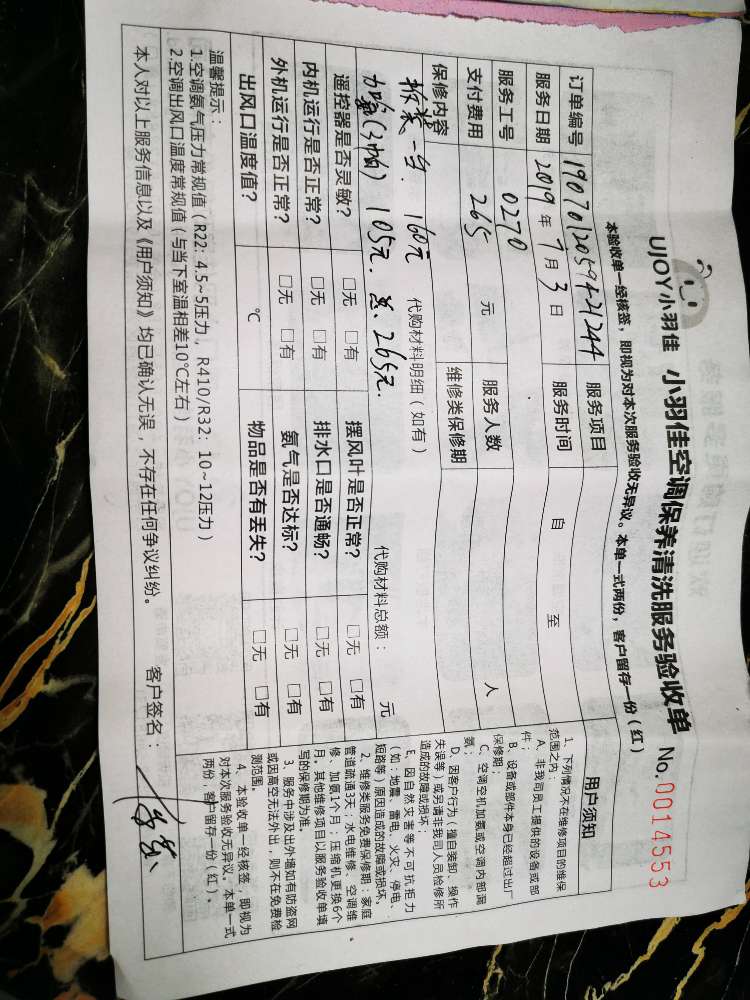 UJOY小羽佳 小羽佳空调保养清洗服务验收单 No.0014553
本验收单一经核签，即视为对本次服务验收无异议。本单一式两份，客户留存一份（红）
订单编号 服务项目
服务日期 2019年7月3日 服务时间 自 至
服务工号 0270 服务人数 人
支付费用 265 元 维修类保修期
保修内容 代购材料明细（如有） 代购材料总额： 元
拆装一台 160元
加氨(3帕) 105元. 总265元.
遥控器是否灵敏？ □无 □有 摆风叶是否正常？ □无 □有
内机运行是否正常？ □无 □有 排水口是否通畅？ □无 □有
外机运行是否正常？ □无 □有 氨气是否达标？ □无 □有
出风口温度值？ ℃ 物品是否有丢失？ □无 □有
温馨提示：
1.空调氨气压力常规值（R22：4.5~5压力，R410/R32：10~12压力）
2.空调出风口温度常规值（与当下室温相差10℃左右）
本人对以上服务信息以及《用户须知》均已确认无误，不存在任何争议纠纷。 客户签名：
用户须知
1、下列情况不在维修项目的维保
范围之内：
A、非我司员工提供的设备或部
件；
B、设备或部件本身已经超过出厂
保修期；
C、空调空机加氨或空调内部漏
氨；
D、因客户行为（擅自装卸、操作
失误等）或另请非我司人员检修所
造成的故障或损坏；
E、因自然灾害等不可抗拒力
（如：地震、雷电、火灾、停电、
短路等）原因造成的故障或损坏。
2、维修类服务免费保修期：家庭
管道疏通3天；水电维修、空调维
修、加氨1个月；压缩机更换6个
月，其他维修项目以服务验收单填
写的保修期为准。
3、服务中涉及出外墙如有防盗网
或因高空无法外出，则不在免费检
测范围。
4、本验收单一经核签，即视为
对本次服务验收无异议。本单一式
两份，客户留存一份（红）。